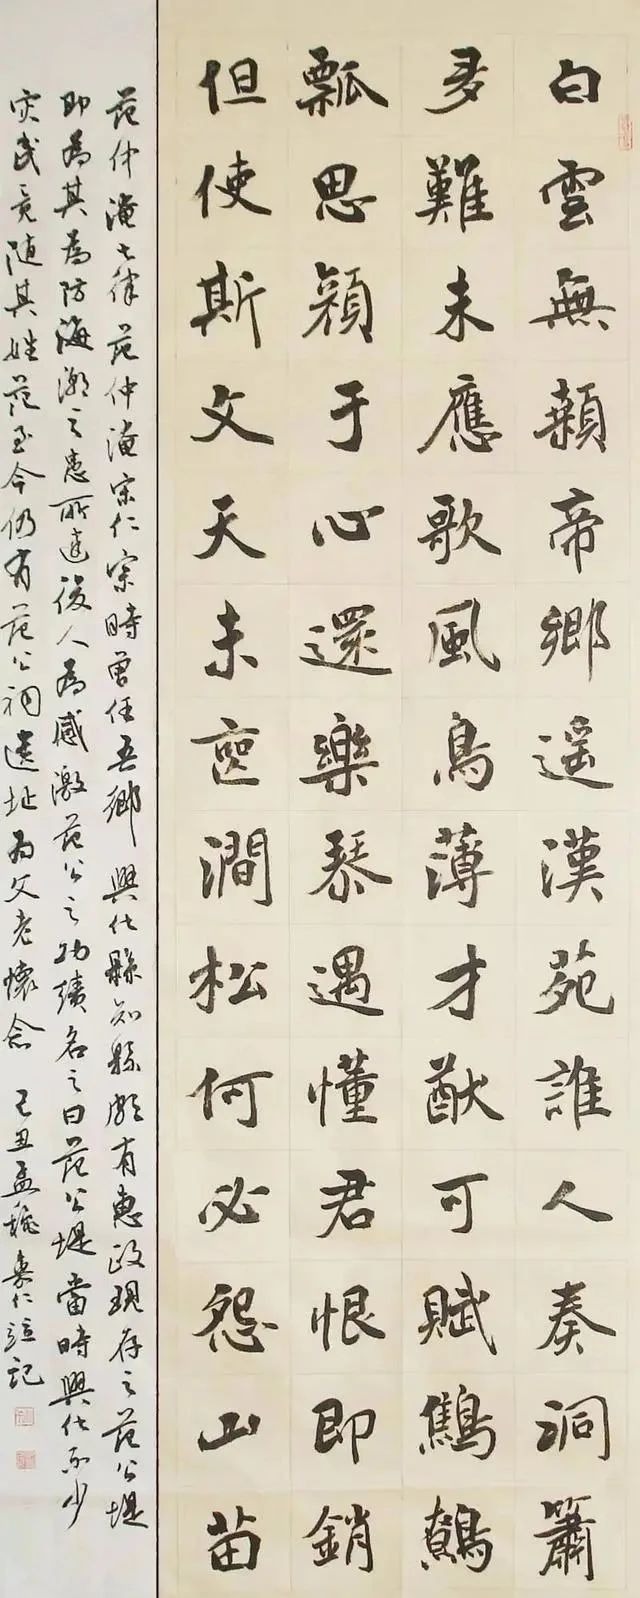 白雲無賴帝鄉遙漢苑誰人奏洞簫
多難未應歌風鳥薄才猷可賦鷦鷯
瓢思顏于心還樂琴遇懂君恨即銷
但使斯文天未喪澗松何必怨山苗
范仲淹七律范仲淹宋仁宗時曾任吾鄉興化縣知縣頗有惠政現存之范公堤
即為其為防海潮之患所建後人為感激范公之功績名之曰范公堤當時興化不少
災民竟隨其姓范至今仍有范公祠遺址為父老懷念 己丑孟穐仁記